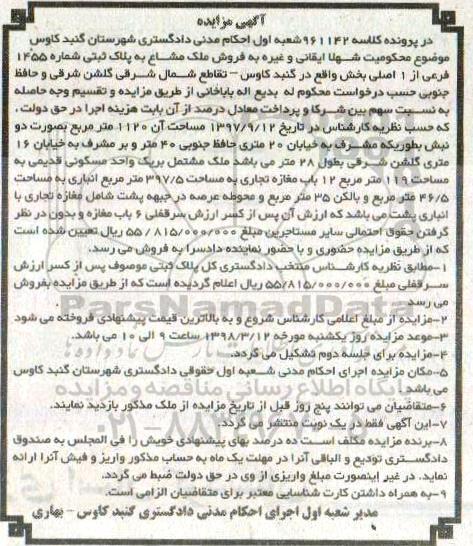 آگهی مزایده
در پرونده کلاسه ۹۶۱۱۴۲ شعبه اول احکام مدنی دادگستری شهرستان گنبد کاوس
موضوع محکومیت شهلا ایقانی و غیره به فروش ملک مشاع به پلاک ثبتی شماره ۱۴۵۵
فرعی از ۱ اصلی بخش واقع در گنبد کاوس – تقاطع شمال شرقی گلشن شرقی و حافظ
جنوبی حسب درخواست محکوم له بدیع اله باباخانی از طریق مزایده و تقسیم وجه حاصله
به نسبت سهم بین شرکا و پرداخت معادل درصد از آن بابت هزینه اجرا در حق دولت .
که حسب نظریه کارشناس در تاریخ ۱۳۹۷/۹/۱۲ مساحت آن ۱۱۲۰ متر مربع بصورت دو
نبش بطوریکه مشرف به خیابان ۲۰ متری حافظ جنوبی ۴۰ متر و بر مشرف به خیابان ۱۶
متری گلشن شرقی بطول ۲۸ متر می باشد ملک مشتمل بر یک واحد مسکونی قدیمی به
مساحت ۱۱۹ متر مربع ۱۲ باب مغازه تجاری به مساحت ۳۹۷/۵ متر مربع انباری به مساحت
۴۶/۵ متر مربع و بالکن ۳۵ متر مربع و محوطه عرصه در جبهه پشت شامل مغازه تجاری با
انباری پشت می باشد که ارزش آن پس از کسر ارزش سرقفلی ۶ باب مغازه و بدون در نظر
گرفتن حقوق احتمالی سایر مستاجرین مبلغ ۵۵/۸۱۵/۰۰۰/۰۰۰ ریال تعیین شده است
که از طریق مزایده حضوری و با حضور نماینده دادسرا به فروش می رسد.
۱-مطابق نظریه کارشناس منتخب دادگستری کل پلاک ثبتی موصوف پس از کسر ارزش
سرقفلی مبلغ ۵۵/۸۱۵/۰۰۰/۰۰۰ ریال اعلام گردیده است که از طریق مزایده بفروش
می رسد
۲-مزایده از مبلغ اعلامی کارشناس شروع و به بالاترین قیمت پیشنهادی فروخته می شود
۳-موعد مزایده روز یکشنبه مورخه ۱۳۹۸/۳/۱۲ ساعت ۹ الی ۱۰ می باشد.
۴-مزایده برای جلسه دوم تشکیل می گردد.
۵-مکان مزایده اجرای احکام مدنی شعبه اول حقوقی دادگستری شهرستان گنبد کاوس
می باشد
۶-متقاضیان می توانند پنج روز قبل از تاریخ مزایده از ملک مذکور بازدید نمایند.
۷-این آگهی فقط در یک نوبت منتشر می گردد.
۸-برنده مزایده مکلف است ده درصد بهای پیشنهادی خویش را فی المجلس به صندوق
دادگستری تودیع و الباقی آنرا در مهلت یک ماه به حساب مذکور واریز و فیش آنرا ارائه
نماید. در غیر اینصورت مبلغ واریزی از وی در حق دولت ضبط می گردد.
۹-به همراه داشتن کارت شناسایی معتبر برای متقاضیان الزامی است.
مدیر شعبه اول اجرای احکام مدنی دادگستری گنبد کاوس – بهاری
ParsNamadData